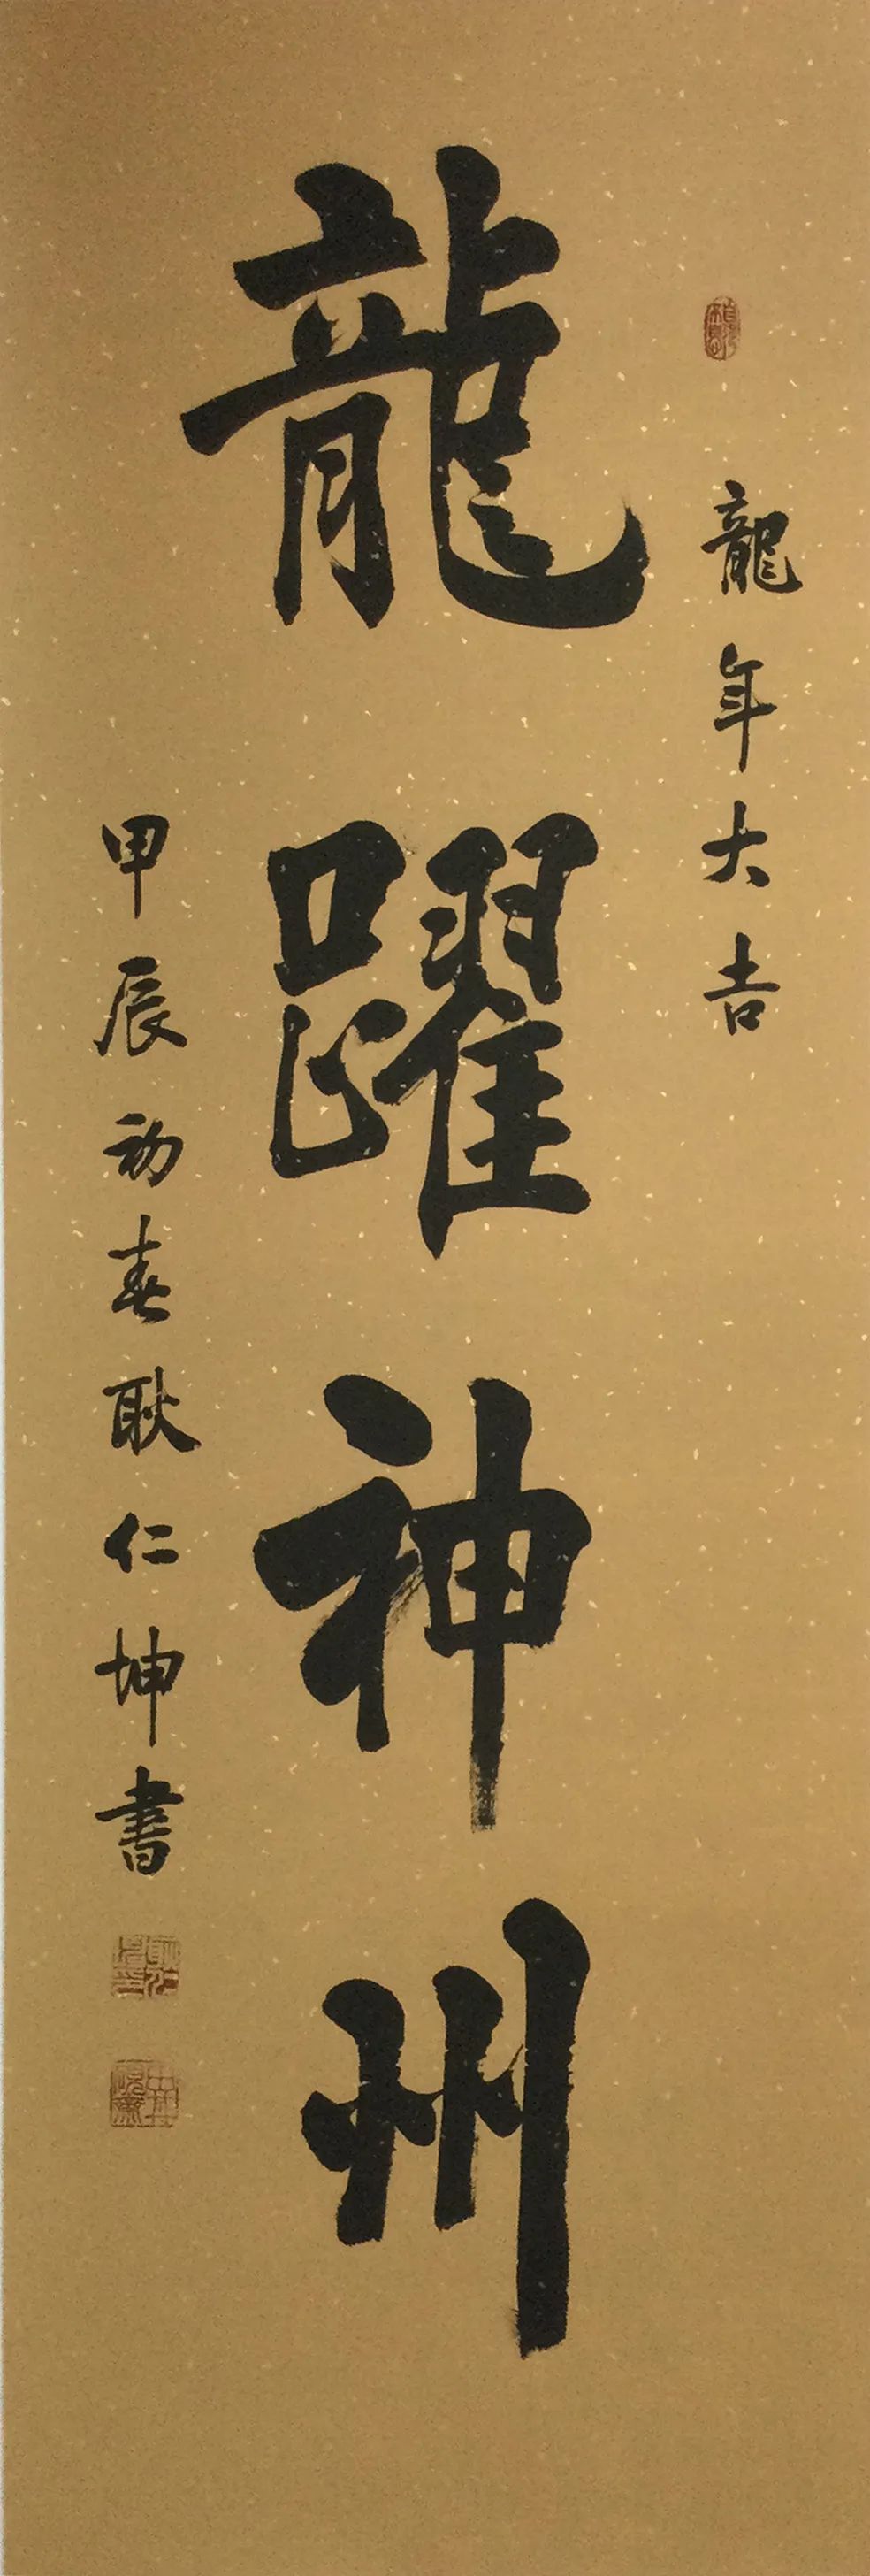 龍年大吉
龍躍神州
甲辰初春耿仁坤書